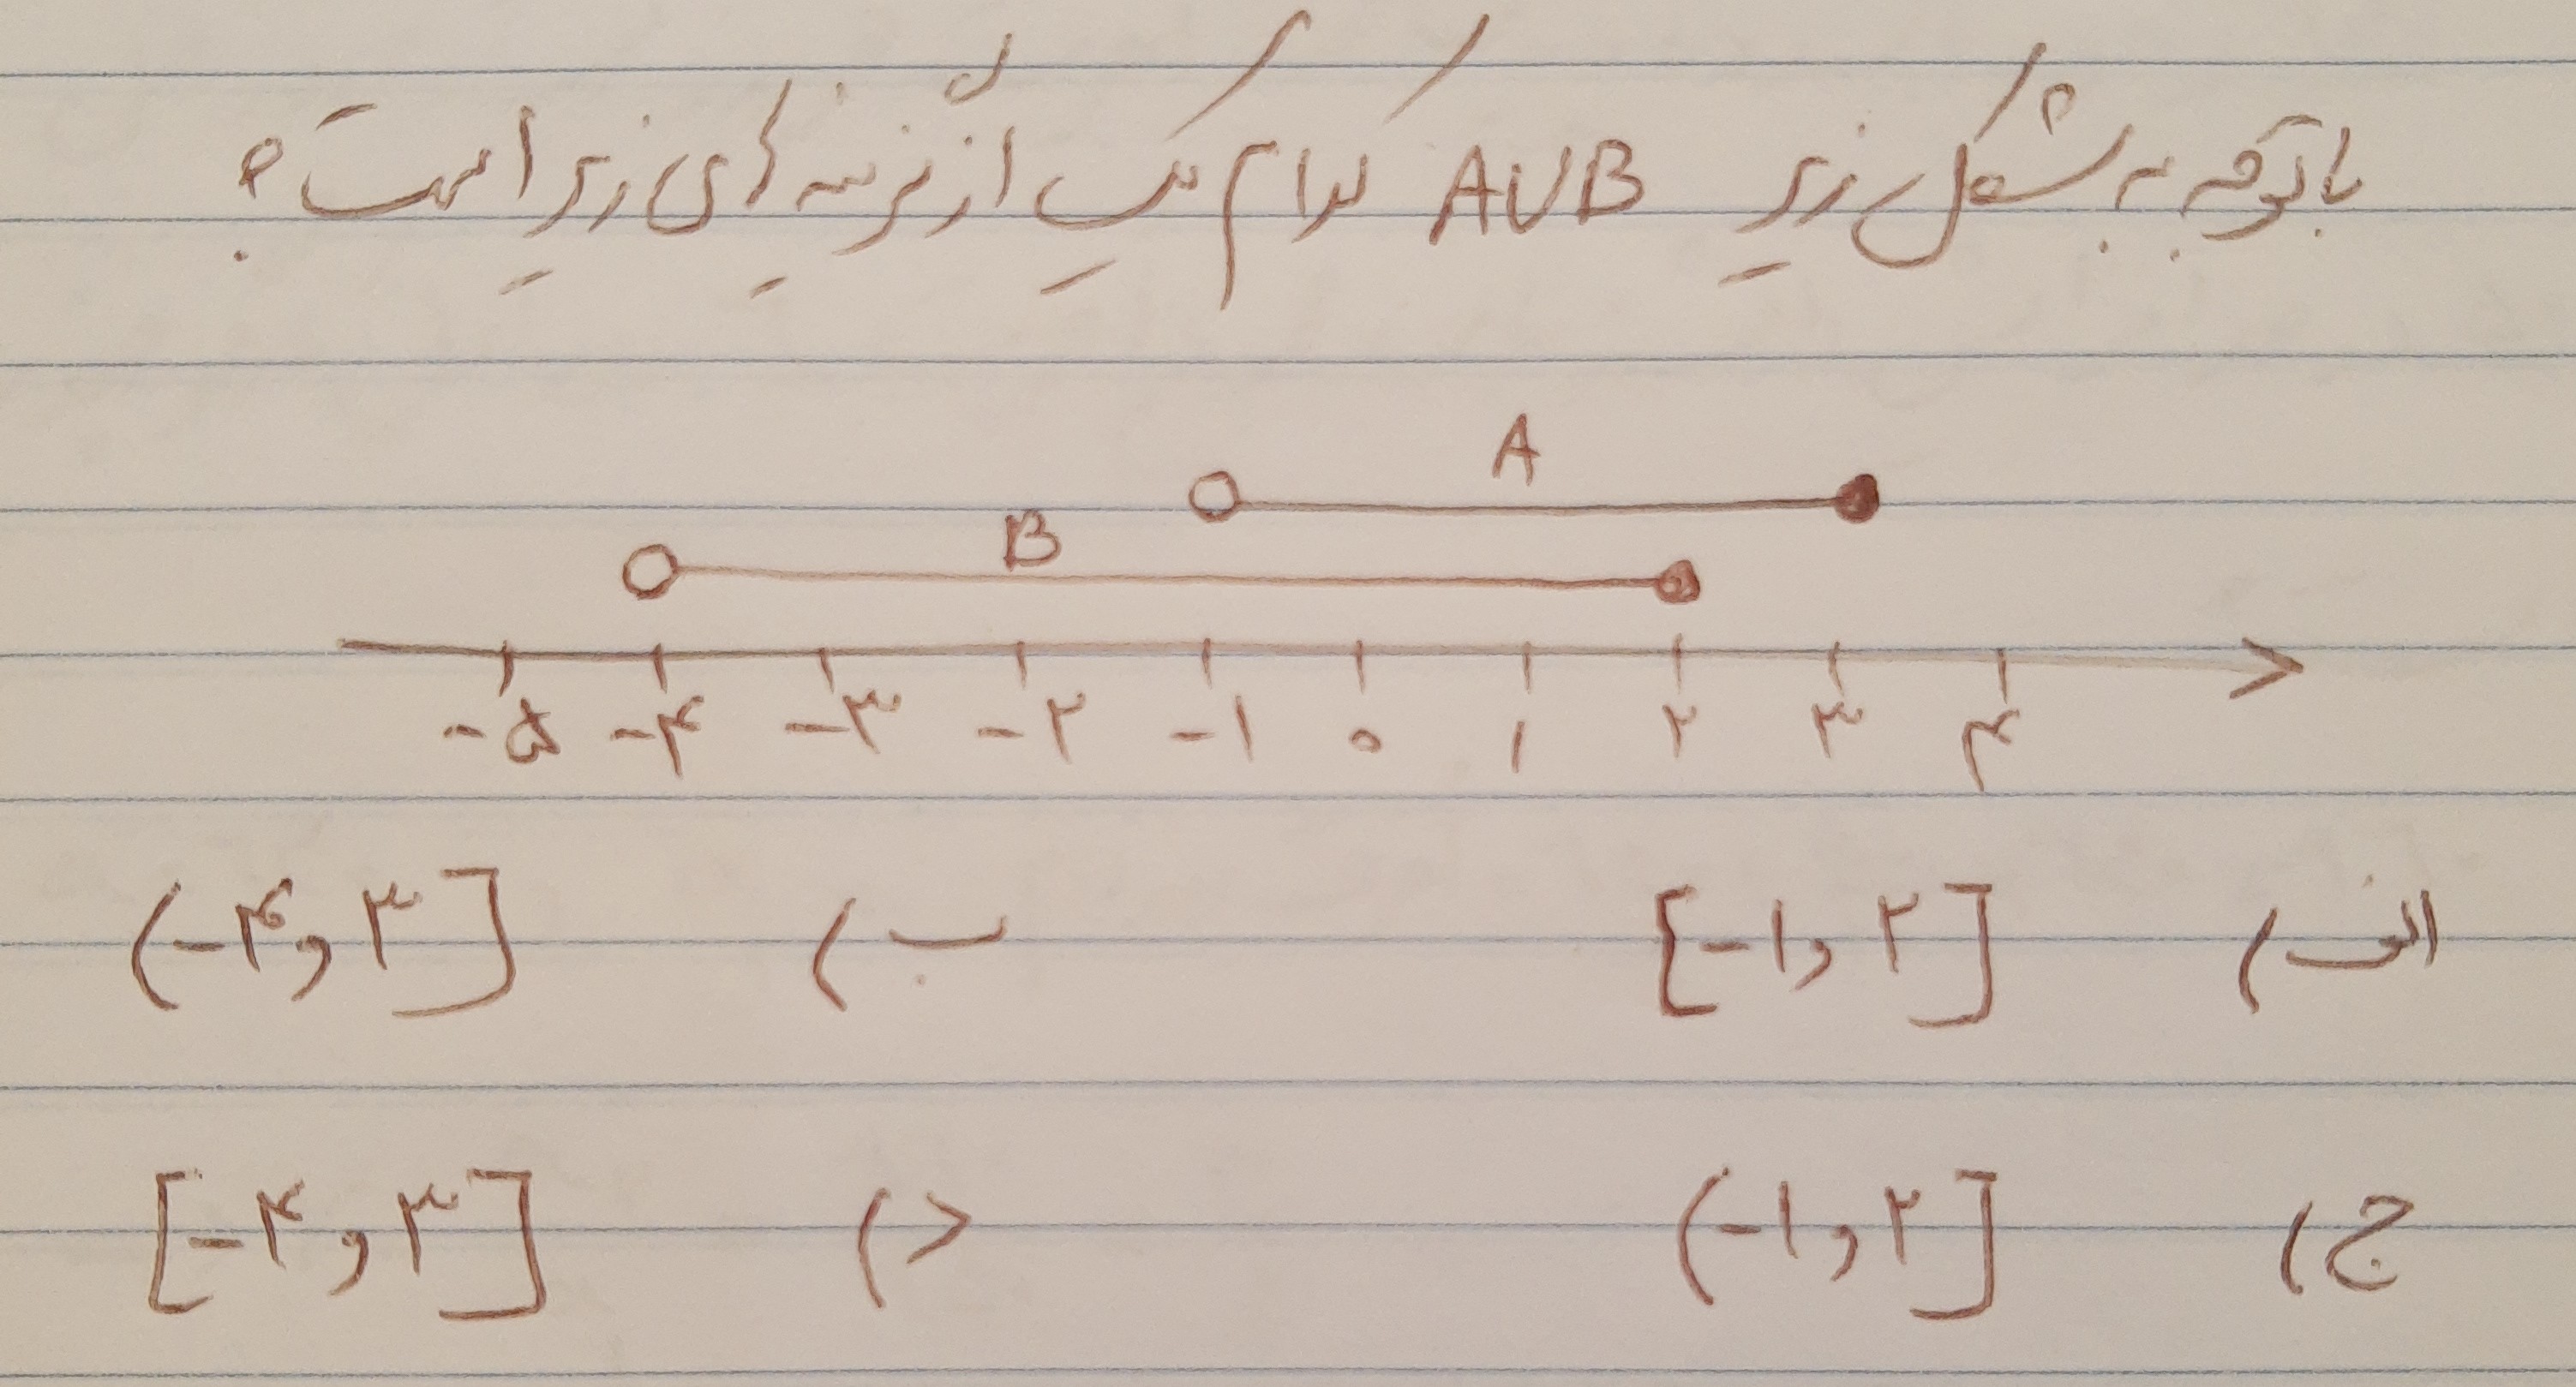 با توجه به شکل زیر A∪B کدام یک از گزینه های زیر است؟
A
B
-۵ -۴ -۳ -۲ -۱ ۰ ۱ ۲ ۳ ۴
الف) [-۱,۲] ب) (-۴,۳]
ج) (-۱,۲] د) [-۴,۳]